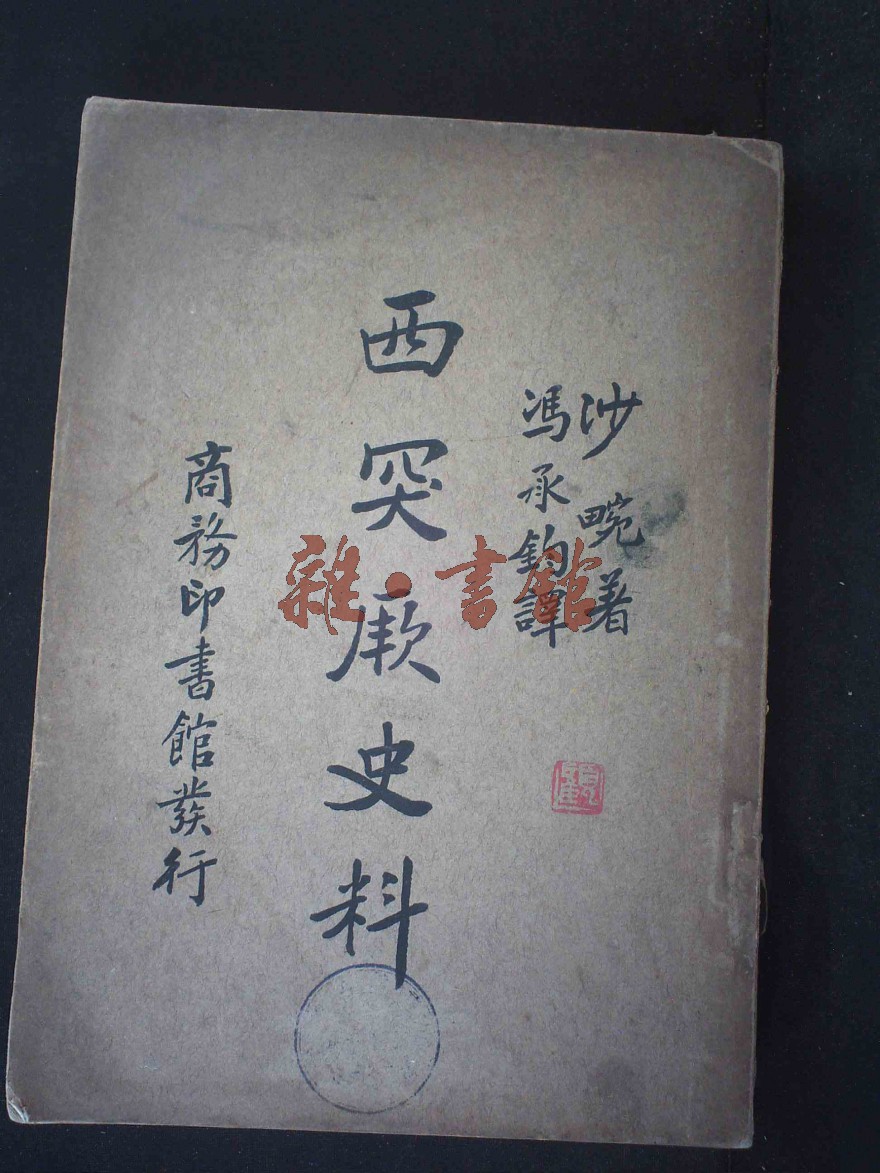 沙畹著
馮承鈞譯
西突厥史料
商務印書館發行
雜·書館